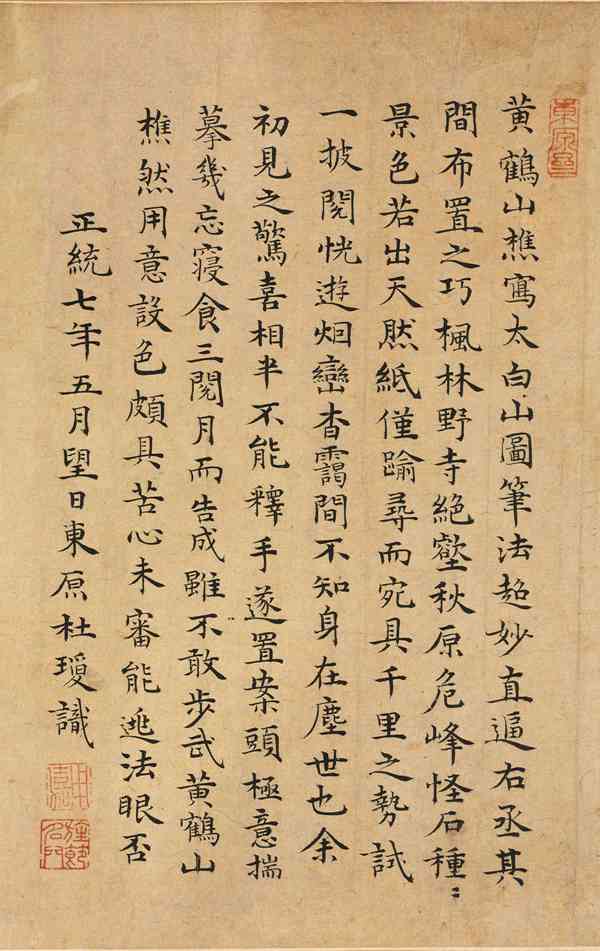 黄鶴山樵寫太白山圖筆法超妙直逼右丞其
間布置之巧楓林野寺絕壑秋原危峰怪石種〻
景色若出天然紙僅踰尋而宛具千里之勢試
一披閱恍遊烟巒杳靄間不知身在塵世也余
初見之驚喜相半不能釋手遂置案頭極意揣
摹幾忘寢食三閱月而告成雖不敢步武黄鶴山
樵然用意設色頗具苦心未審能逃法眼否
正統七年五月望日東原杜瓊識